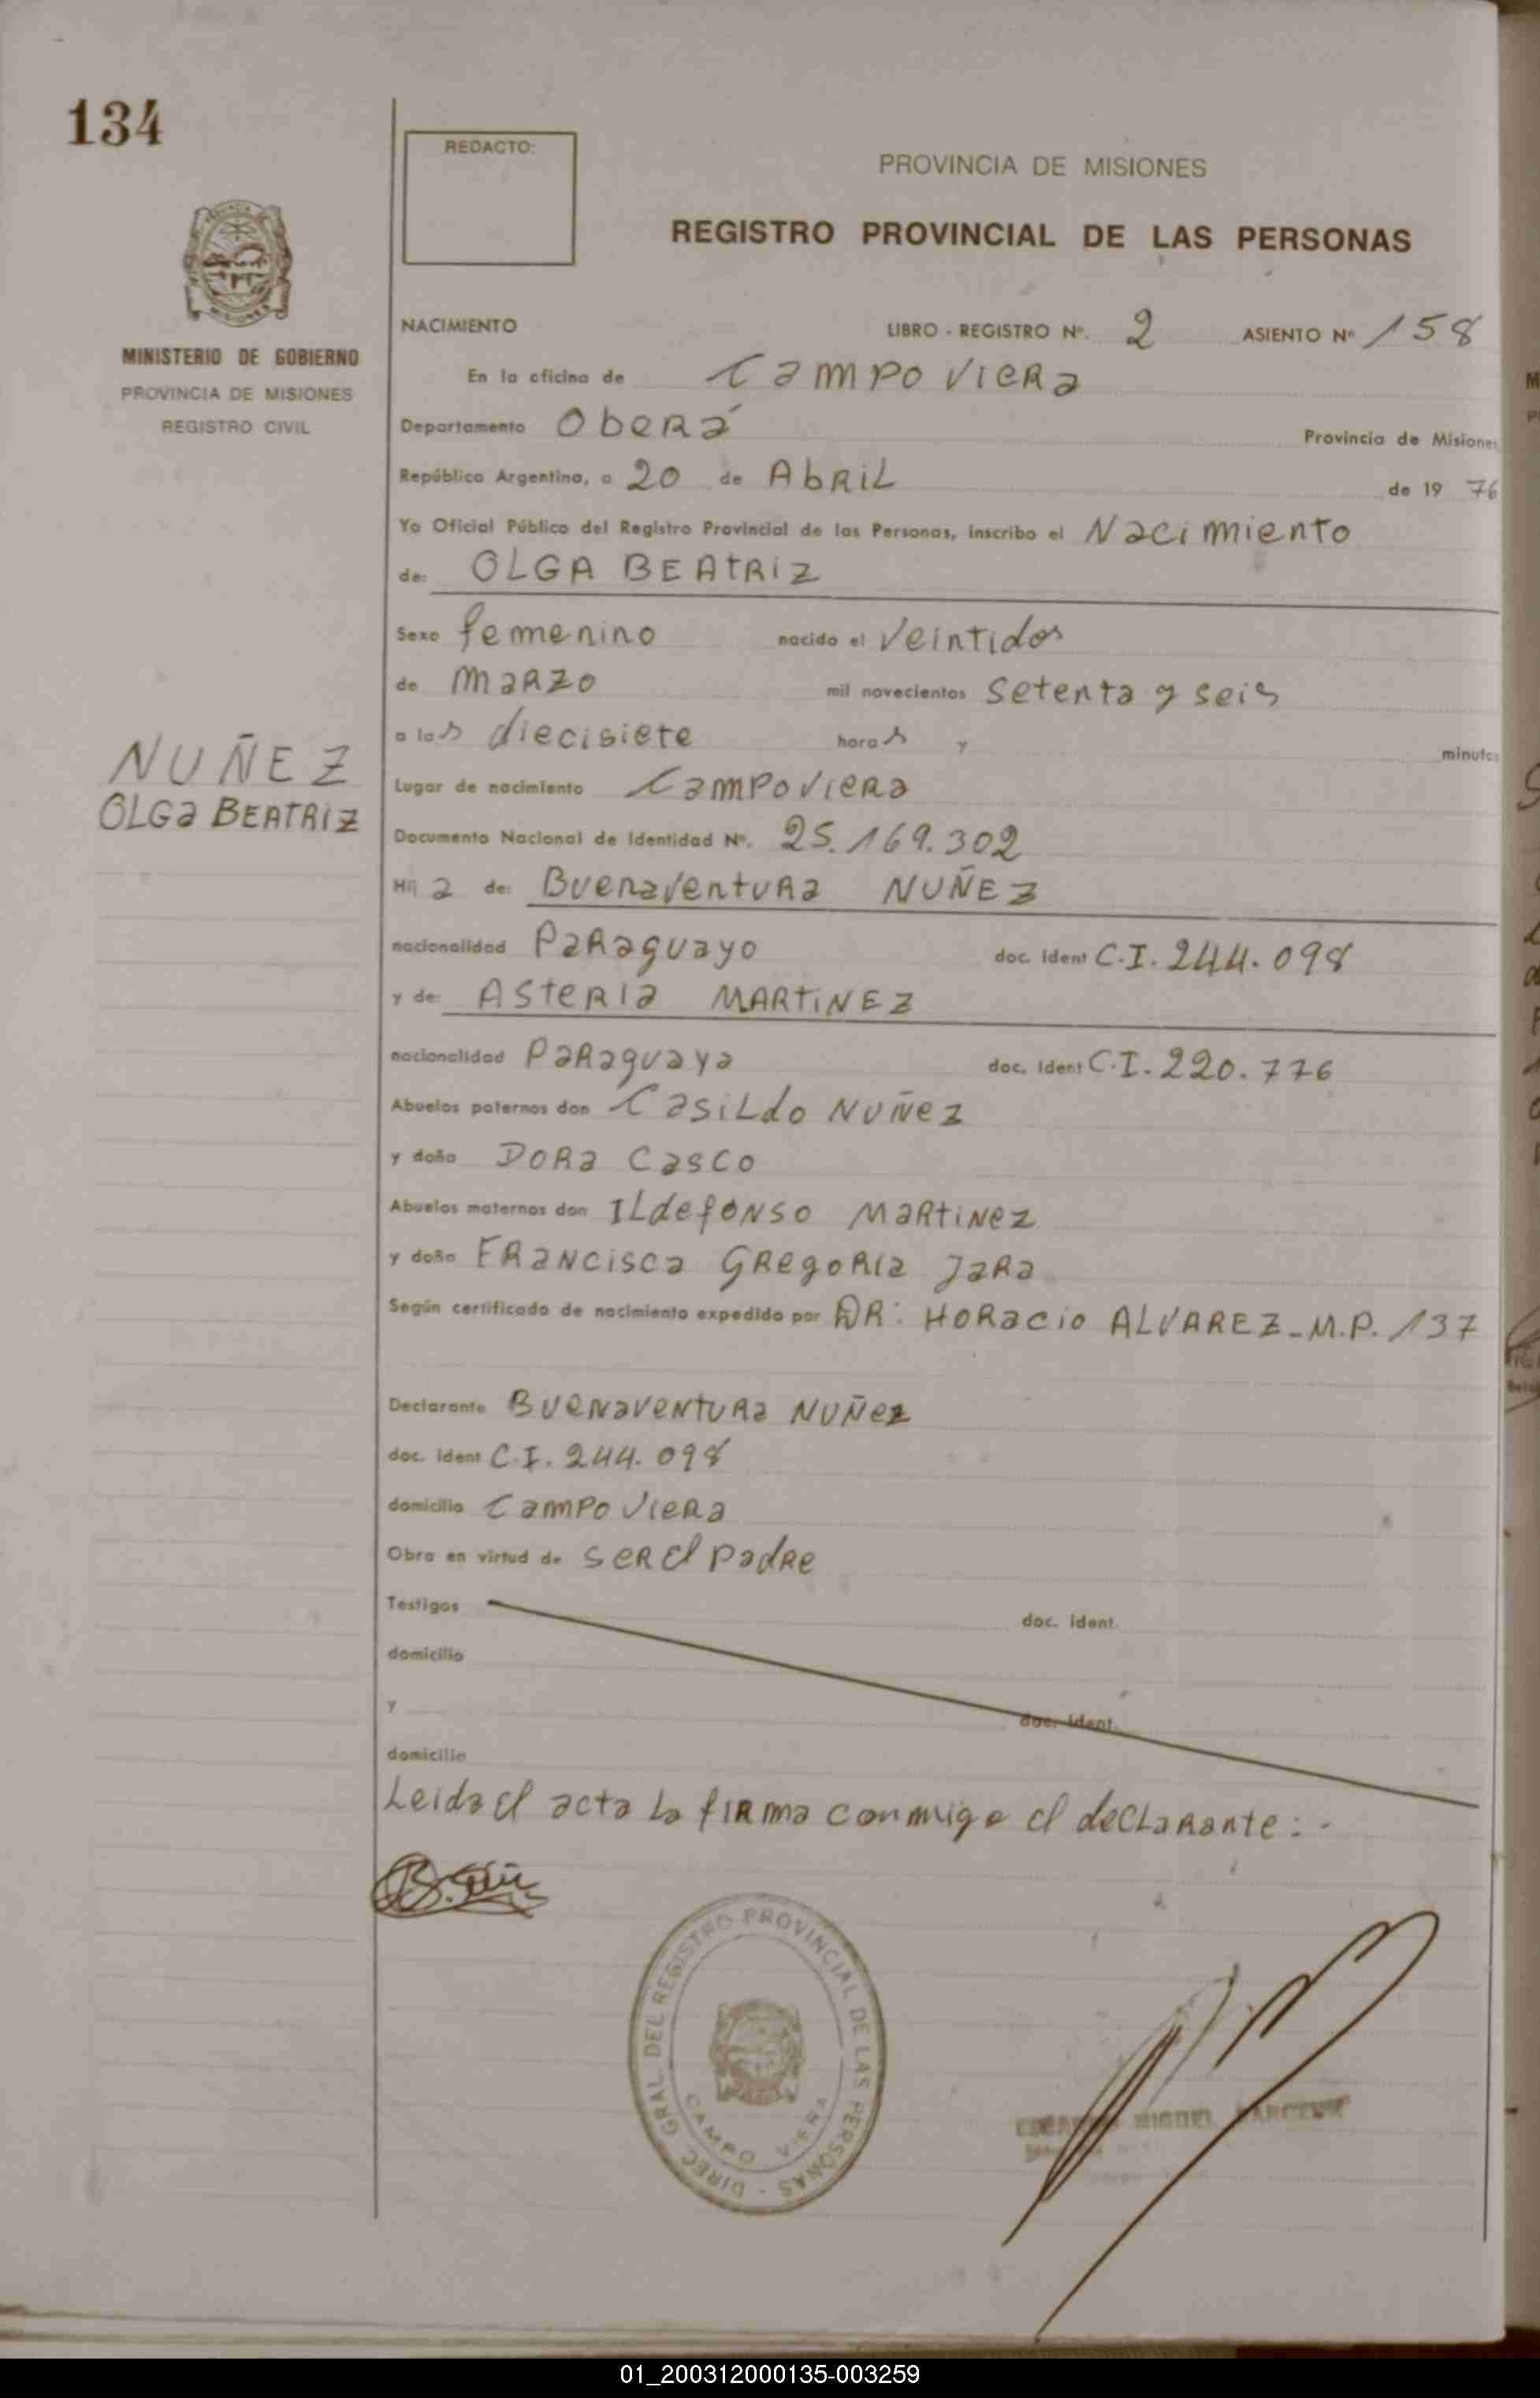 134
REDACTO:
PROVINCIA DE MISIONES
REGISTRO PROVINCIAL DE LAS PERSONAS
MINISTERIO DE GOBIERNO
PROVINCIA DE MISIONES
REGISTRO CIVIL
NACIMIENTO LIBRO - REGISTRO Nº. 2 ASIENTO Nº 158
En la oficina de Campo Viera
Departamento Oberá Provincia de Misiones
República Argentina, a 20 de Abril de 1976
Yo Oficial Público del Registro Provincial de las Personas, inscribo el Nacimiento
de: OLGA BEATRIZ
Sexo femenino nacido el veintidos
de marzo mil novecientos setenta y seis
a las diecisiete horas y minutos
NUÑEZ
OLGA BEATRIZ
Lugar de nacimiento Campo Viera
Documento Nacional de Identidad Nº. 25.169.302
Hija de: Buenaventura NUÑEZ
nacionalidad Paraguayo doc. ident C.I. 244.098
y de: Asteria MARTINEZ
nacionalidad Paraguaya doc. ident C.I. 220.776
Abuelos paternos don Casildo Nuñez
y doña Dora Casco
Abuelos maternos don Ildefonso Martinez
y doña Francisca Gregoria Jara
Según certificado de nacimiento expedido por DR: Horacio ALVAREZ - M.P. 137
Declarante Buenaventura Nuñez
doc. ident C.I. 244.098
domicilio Campo Viera
Obra en virtud de ser el padre
Testigos doc. ident.
domicilio
y doc. ident.
domicilio
Leida el acta la firma conmigo el declarante:-
DIREC. GRAL DEL REGISTRO PROVINCIAL DE LAS PERSONAS -
CAMPO VIERA
MIGUEL
01_200312000135-003259